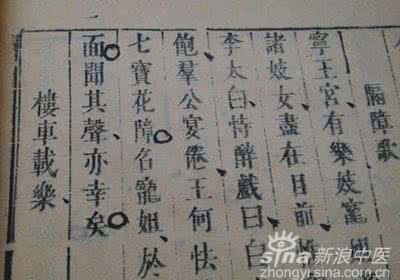 隔障歌
寧王宮有樂妓寵姐
諸妓女盡在目前
李太白恃醉戲曰白
飽羣公宴倦王何怯
七寶花障名寵姐於
面聞其聲亦幸矣
樓車載樂
sina新浪中医
zhongyi.sina.com